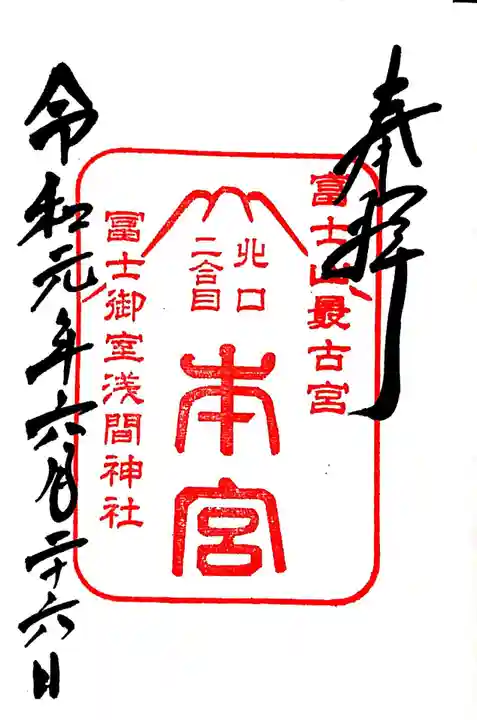 奉拝
富士山最古宮
北口
二合目
本宮
冨士御室浅間神社
令和元年六月二十六日